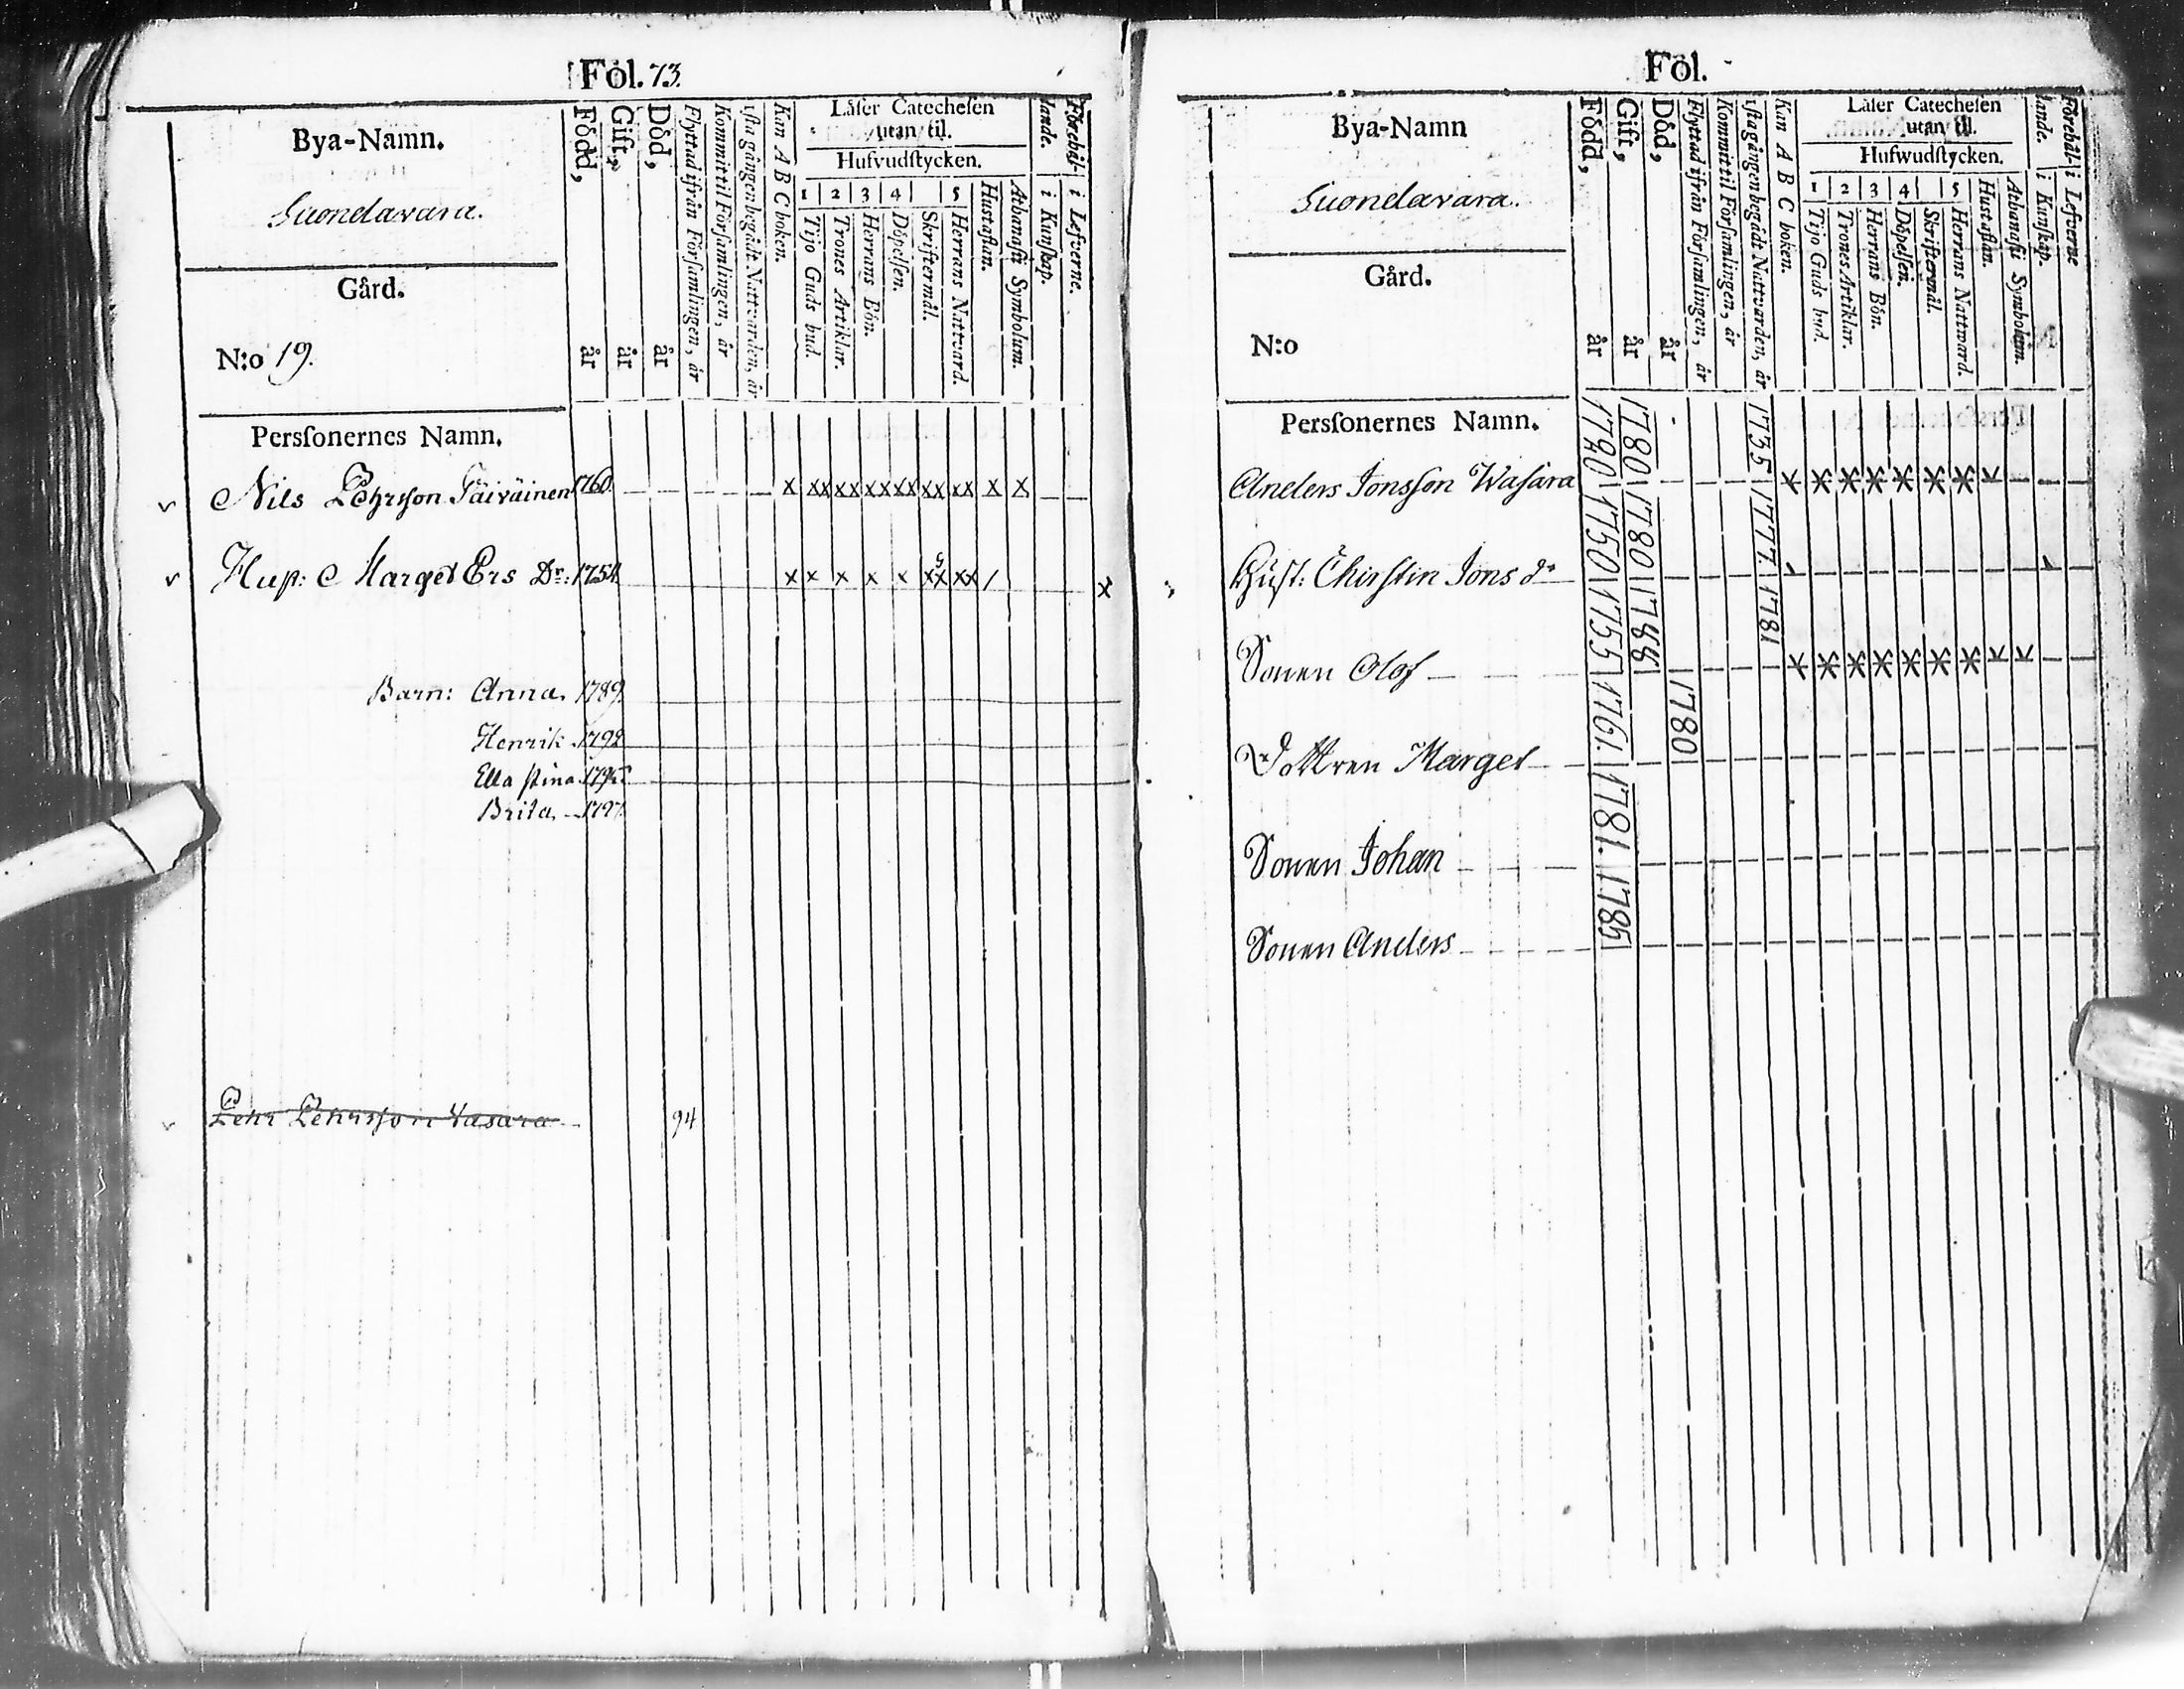 Fol. 73.
Bya-Namn.
Suondavara.
Gård.
N:o 19.
Född, år
Gift, år
Död, år
Flyttad ifrån Församlingen, år
Kommit til Församlingen, år
1sta gången begådt Nattvarden, år
Kan A B C boken.
Läser Catechesen
utan til.
Hufvudstycken.
1 2 3 4 5
Tijo Guds bud.
Trones Artiklar.
Herrans Bön.
Döpelsen.
Skriftermål.
Herrans Nattvard.
Hustaflan.
Athanasii Symbolum.
Förehål-
lande.
i Kunskap.
i Lefverne.
Perssonernes Namn.
Nils Pehrsson Päiväinen 1760. x xx xx xx xx xx xx x x
Hust: Marget Ers Dr: 1754 x x x x x xx xx / x
Barn: Anna. 1789.
Henrik. 1792
Ella Stina. 1795.
Brita. 1797.
Pehr Pehrsson Vasara 94
Fol.
Bya-Namn
Suondavara.
Gård.
N:o
Född, år
Gift, år
Död, år
Flyttad ifrån Församlingen, år
Kommit til Församlingen, år
1sta gången begådt Nattvarden, år
Kan A B C boken.
Läser Catechesen
utan til.
Hufwudstycken.
1 2 3 4 5
Tijo Guds bud.
Trones Artiklar.
Herrans Bön.
Döpelsen.
Skriftermål.
Herrans Nattward.
Hustaflan.
Athanasii Symbolum.
Förehål-
lande.
i Kunskap.
i Lefverne
Perssonernes Namn.
Anders Jonsson Wasara 1720 1780 1735
Hust: Chirstin Jons dr 1750 1780 1777.
Sonen Olof 1755 1781
Dottren Marget 1761. 1780
Sonen Johan 1781.
Sonen Anders 1785